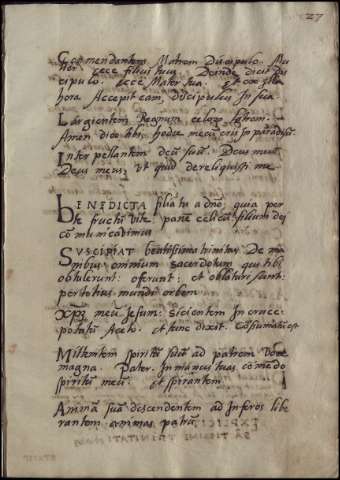 27
Comendantem Matrem Discipulo. Mu
lier ecce filius tuus. Deinde dicit Dis
cipulo. ecce Mater tua. et ex illa
hora Accepit eam, Discipulus In sua
Largientem Regnum celorum latroni.
Amen dico tibi, hodie mecum eris In paradiso.
Inter pellantem deum suum. Deus meus
Deus meus, ut quid dereliquisti me
bENEDICTA filia tu a dno, quia per
te fructum vite pane celi cum filium dei
comunicavimus
SUSCIPIAT beatissima trinitas De ma
nibus omnium sacerdotum qui tibi
obtulerunt: oferunt: et oblaturi sunt:
per totius mundi orbem
XPM meum Jesum: sicientem In cruce
potatum Aceto. et tunc dixit. Consumatum est
Mittentem spiritum suum ad patrem voce
magna. Pater. In manus tuas comendo
spiritum meum et spirantem
Animam suam descendentem ad Inferos libe
rantem animas patrum.